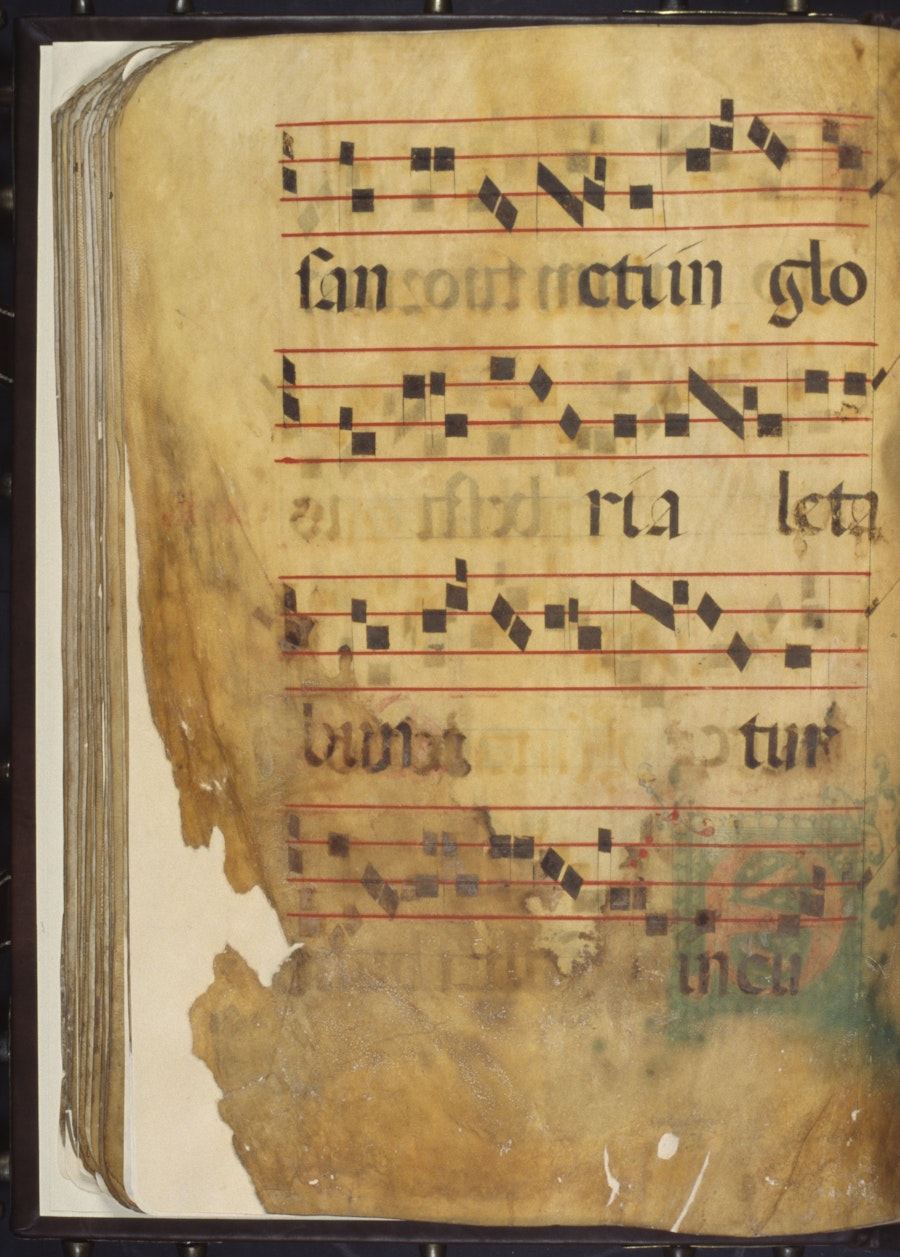 san ctum glo
ria leta
bun tur
in cu